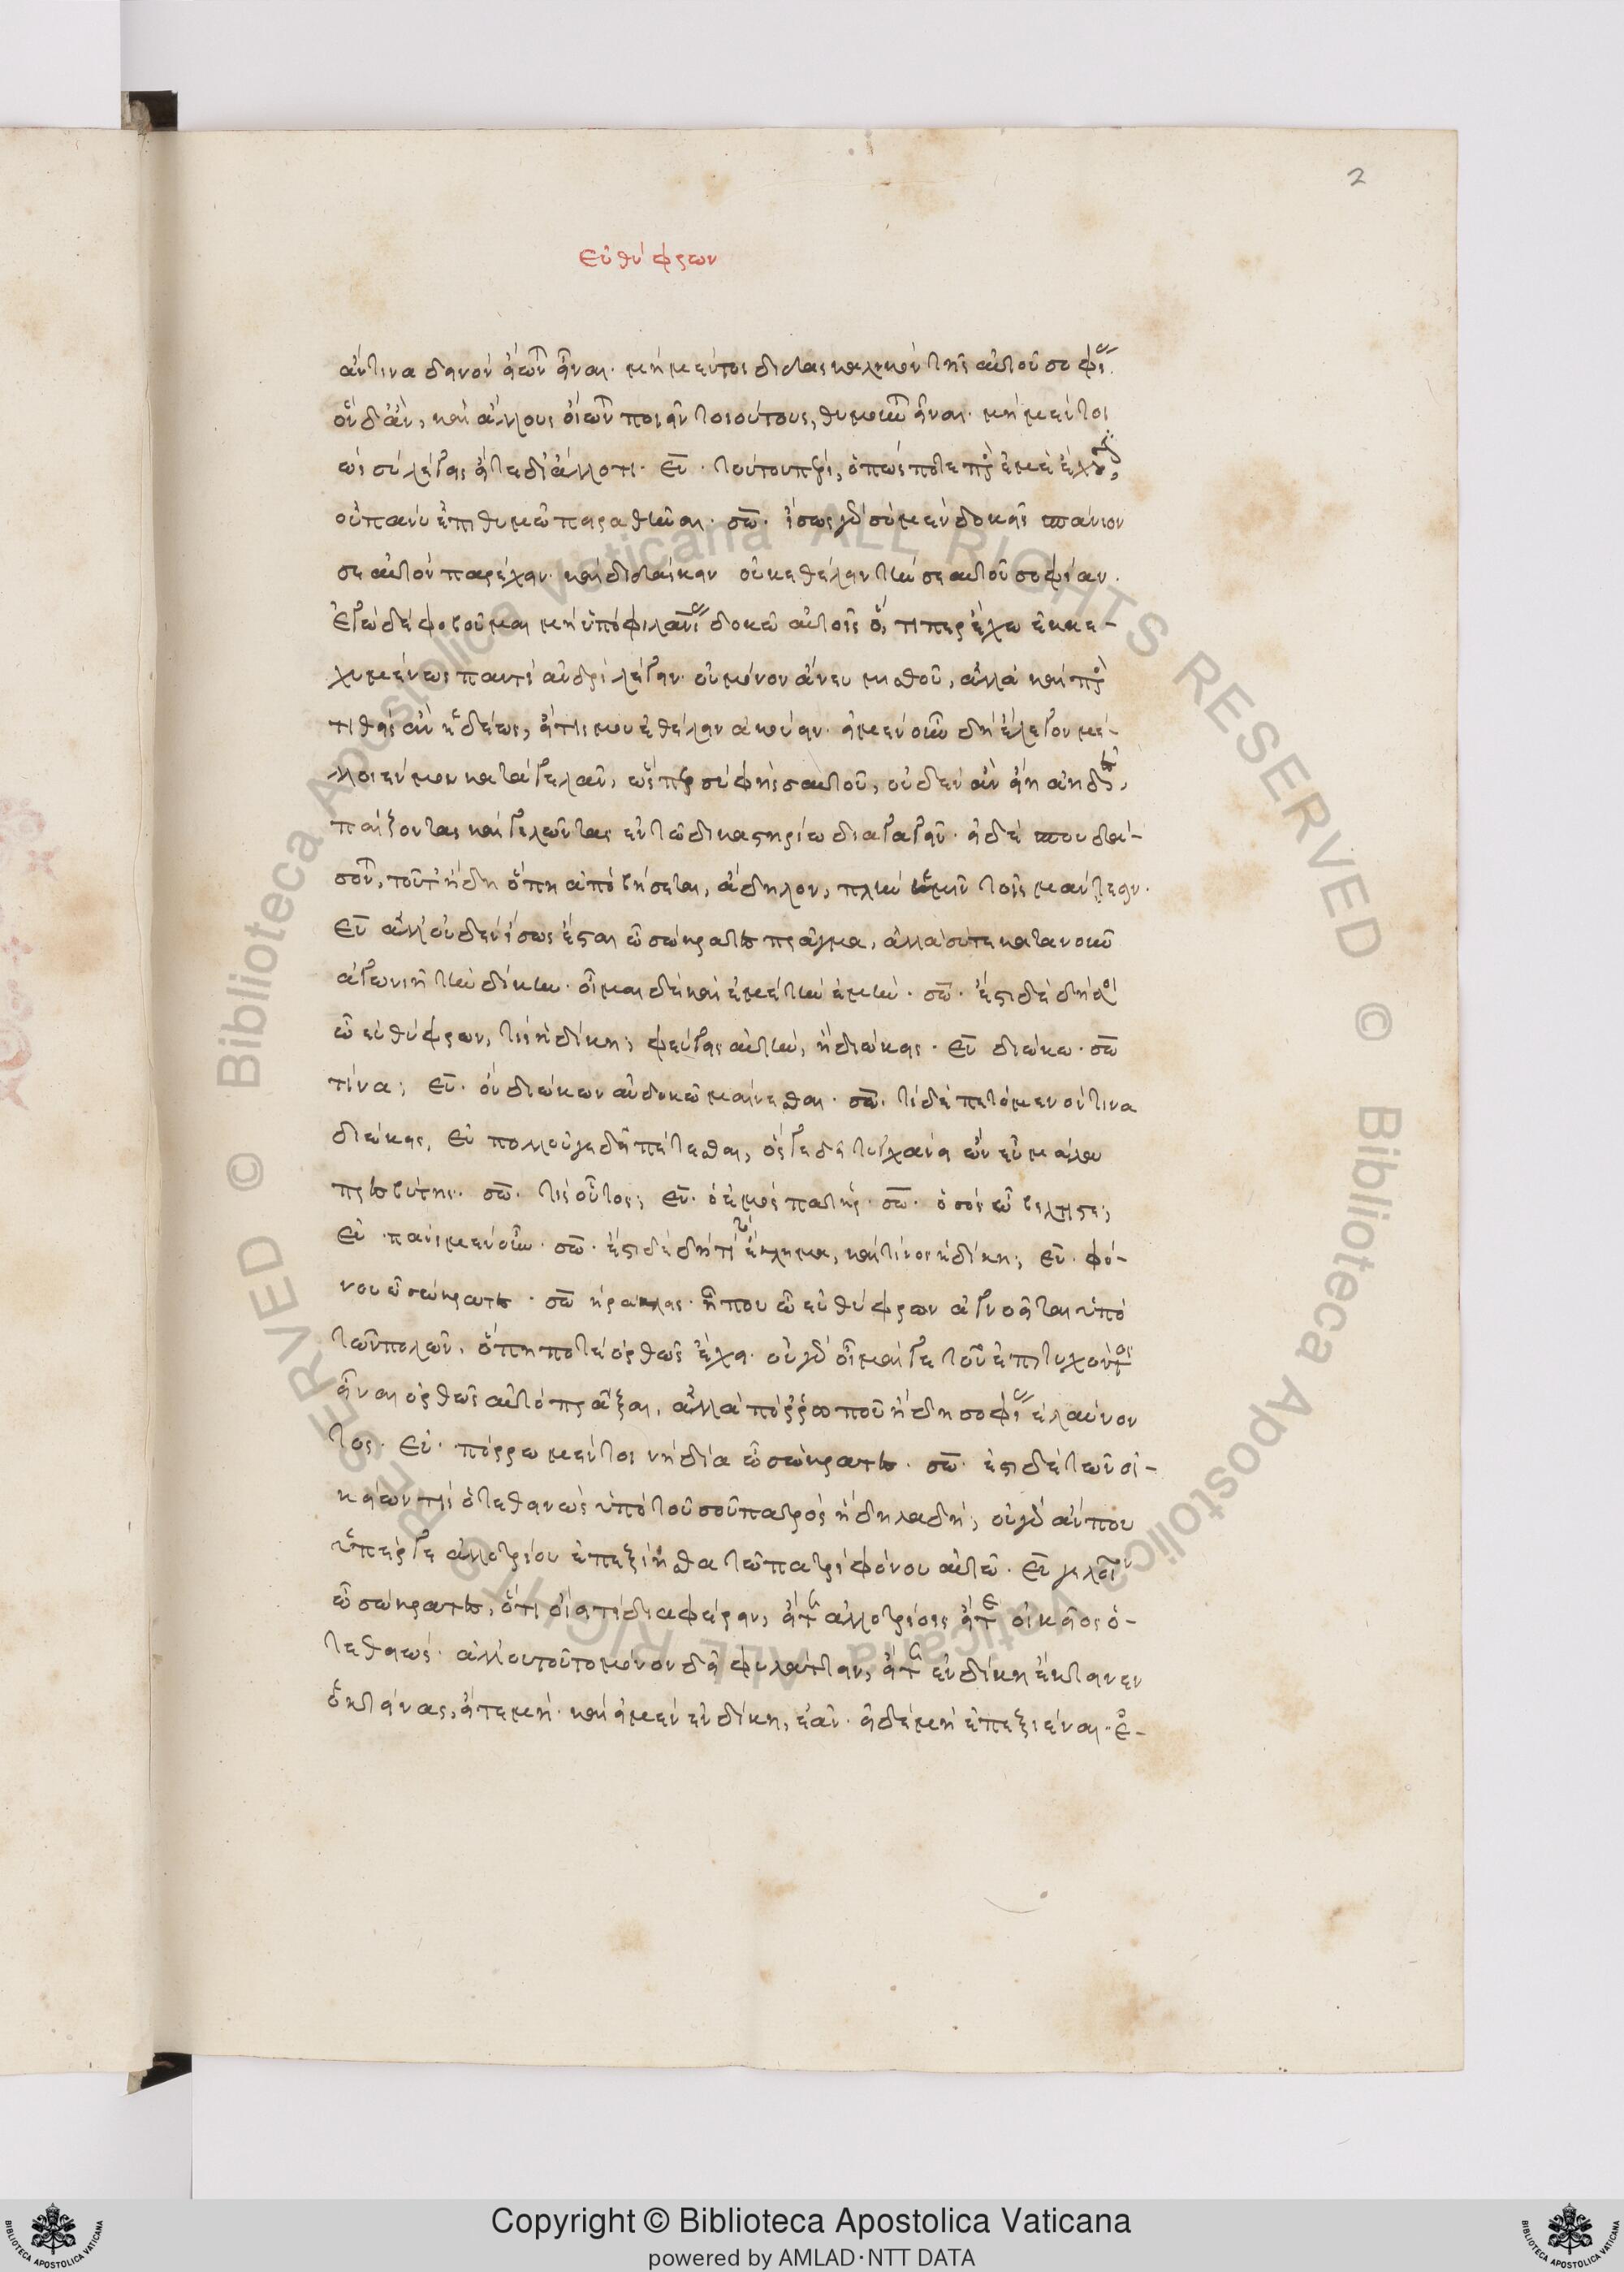 2
εὐθύφρων
ἄν τινα δεινὸν οἴωνται εἶναι. μὴ μέντοι διδασκαλικὸν τῆς αὑτοῦ σοφίας.
ὃν δ' ἂν, καὶ ἄλλους οἴωνται ποιεῖν τοιούτους, θυμοῦνται. μὴ μέντοι
ὡς σὺ λέγεις εἴτε δι' ἄλλο τι. ευ. τούτου πέρι, ὅπως ποτὲ πρὸς ἐμὲ ἔχουσιν,
οὐ πάνυ ἐπιθυμῶ πειραθῆναι. σω. ἴσως γὰρ σὺ μὲν δοκεῖς σπάνιον
σεαυτὸν παρέχειν. καὶ διδάσκειν οὐκ ἐθέλειν τὴν σεαυτοῦ σοφίαν.
ἐγὼ δὲ φοβοῦμαι μὴ ὑπὸ φιλανθρωπίας δοκῶ αὐτοῖς ὅ, τι περ ἔχω ἐκκε-
χυμένως παντὶ ἀνδρὶ λέγειν. οὐ μόνον ἄνευ μισθοῦ, ἀλλὰ καὶ προσ
τιθεὶς ἂν ἡδέως, εἴ τις μου ἐθέλειν ἀκούειν. εἰ μὲν οὖν δὴ ἔλεγον μέ-
λλοιέν μου καταγελᾶν, ὥσπερ σὺ φῂς σαυτοῦ, οὐδὲν ἂν εἴη ἀηδὲς,
παίζοντας καὶ γελῶντας ἐν τῷ δικαστηρίῳ διαγαγεῖν. εἰ δὲ σπουδά-
σονται, τοῦτ' ἤδη ὅπη ἀποβήσεται, ἄδηλον, πλὴν ὑμῖν τοῖς μάντεσιν.
ευ ἀλλ' οὐδὲν ἴσως ἔσται ὦ σώκρατες πρᾶγμα, ἀλλὰ σύ τε κατὰ νοῦν
ἀγωνιῇ τὴν δίκην. οἶμαι δὲ καὶ ἐμὲ τὴν ἐμήν. σω. ἔστι δὲ δὴ σοὶ
ὦ εὐθύφρων, τίς ἡ δίκη; φεύγεις αὐτὴν, ἢ διώκεις. ευ διώκω. σω
τίνα; ευ. ὃν διώκων αὖ δοκῶ μαίνεσθαι. σω. τί δὲ πετόμενόν τινα
διώκεις, ευ πολλοῦ γε δεῖ πέτεσθαι, ὅς γε δὲ τυγχάνει ὢν εὖ μάλα
πρεσβύτης. σω. τίς οὗτος; ευ. ὁ ἐμὸς πατήρ. σω. ὁ σὸς ὦ βέλτιστε;
ευ. πάνυ μὲν οὖν. σω. ἔστι δὲ δὴ τί τὸ ἔγκλημα, καὶ τίνος ἡ δίκη; ευ. φό-
νου ὦ σώκρατες. σω ἡράκλεις. ἦ που ὦ εὐθύφρων ἀγνοεῖται ὑπὸ
τῶν πολλῶν, ὅπη ποτὲ ὀρθῶς ἔχει. οὐ γὰρ οἶμαί γε τοῦ ἐπιτυχόντος
εἶναι ὀρθῶς αὐτὸ πρᾶξαι, ἀλλὰ πόρρω που ἤδη σοφίας ἐλαύνον
τος. ευ. πόρρω μέντοι νὴ δία ὦ σώκρατες. σω. ἔστι δὲ τῶν οἰ-
κείων τις ὁ τεθνεὼς ὑπὸ τοῦ σοῦ πατρὸς ἢ δῆλα δὴ; οὐ γὰρ ἄν που
ὑπέρ γε ἀλλοτρίου ἐπεξῄεισθα τῷ πατρὶ φόνου αὐτῷ. ευ γελοῖον
ὦ σώκρατες, ὅτι οἴει τί διαφέρειν, εἴτε ἀλλότριος εἴτε οἰκεῖος ὁ-
τεθνεὼς. ἀλλ' οὐ τοῦτο μόνον δεῖ φυλάττειν, εἴτε ἐν δίκῃ ἔκτεινεν
ὁ κτείνας, εἴτε μή. καὶ εἰ μὲν ἐν δίκῃ, ἐᾶν. εἰ δὲ μὴ ἐπεξιέναι. ἐ-